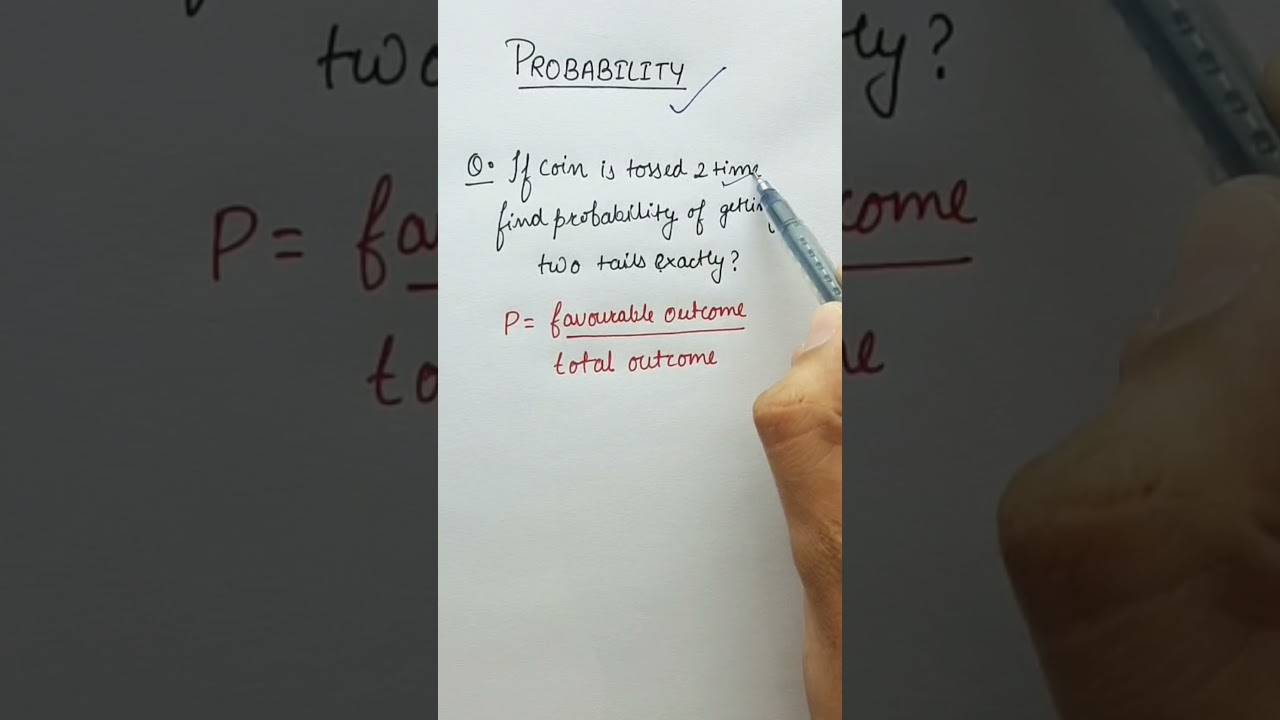 PROBABILITY
Q. If coin is tossed 2 time
find probability of
two tails exactly?
P= favourable outcome
total outcome